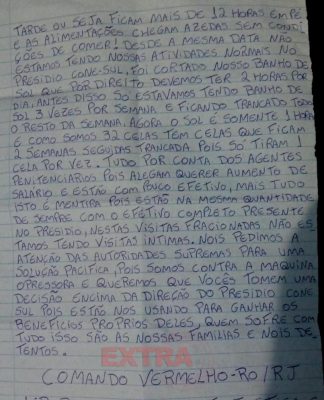 TARDE OU SEJA FICAM MAIS DE 12 HORAS EM PÉ
E AS ALIMENTAÇÕES CHEGAM AZEDAS SEM CONDI
ÇÕES DE COMER! DESDE A MESMA DATA NÃO
ESTAMOS TENDO NOSSAS ATIVIDADES NORMAIS NO
PRESIDIO CONE-SUL, FOI CORTADO NOSSO BANHO DE
SOL QUE POR DIREITO DEVEMOS TER 2 HORAS POR
DIA, ANTES DISSO SO ESTAVAMOS TENDO BANHO DE
SOL 3 VEZES POR SEMANA E FICANDO TRANCADO TODO
O RESTO DA SEMANA, AGORA O SOL É SOMENTE 1 HORA
E COMO SOMOS 32 CELAS TEM CELAS QUE FICAM
2 SEMANAS SEGUIDAS TRANCADA POIS SO TIRAM 1
CELA POR VEZ. TUDO POR CONTA DOS AGENTES
PENITENCIARIOS POIS ALEGAM QUERER AUMENTO DE
SALARIO E ESTÃO COM POUCO EFETIVO, MAIS TUDO
ISTO É MENTIRA POIS ESTÃO NA MESMA QUANTIDADE
DE SEMPRE COM O EFETIVO COMPLETO PRESENTE
NO PRESIDIO, NESTAS VISITAS FRACIONADAS NÃO ES-
TAMOS TENDO VISITAS INTIMAS. NOIS PEDIMOS A
ATENÇÃO DAS AUTORIDADES SUPREMAS PARA UMA
SOLUÇÃO PACIFICA, POIS SOMOS CONTRA A MAQUINA
OPRESSORA E QUEREMOS QUE VOCÊS TOMEM UMA
DECISÃO ENCIMA DA DIREÇÃO DO PRESIDIO CONE
SUL POIS ESTÃO NOS USANDO PARA GANHAR OS
BENEFICIOS PROPRIOS DELES, QUEM SOFRE COM
TUDO ISSO SÃO AS NOSSAS FAMILIAS E NOIS DE-
TENTOS.
EXTRA
COMANDO VERMELHO-RO/RJ